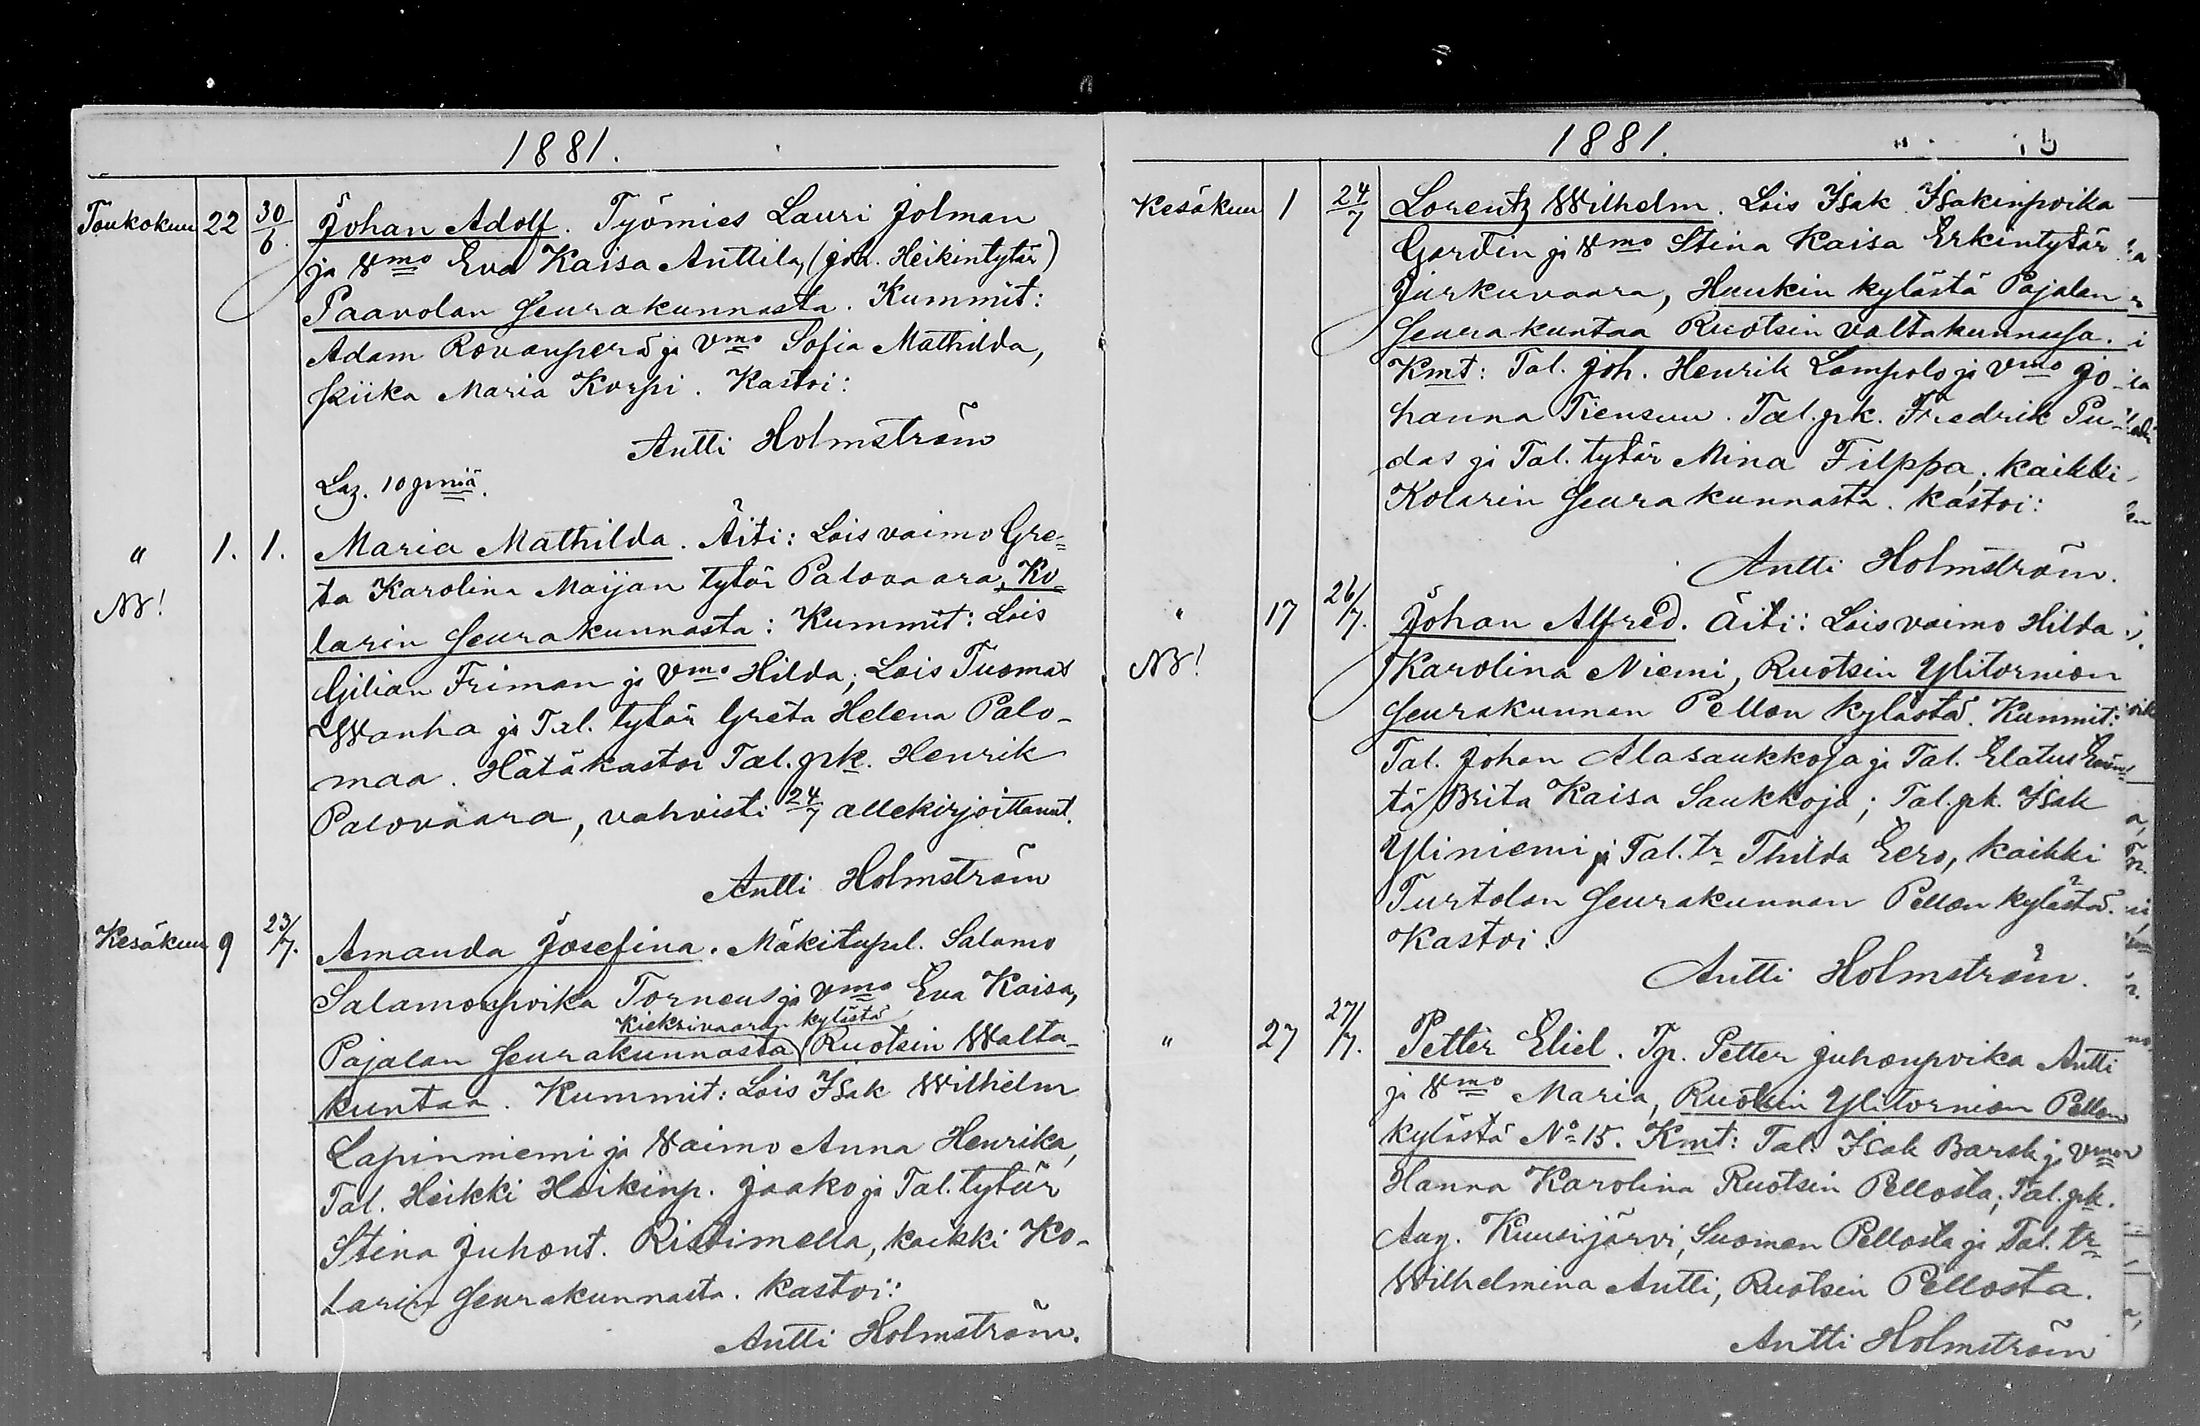 1881.
Toukokuu 22 30/6. Johan Adolf. Työmies Lauri Jolman
ja Vmo Eva Kaisa Anttila, (Joh. Heikintytär)
Paavolan Seurakunnasta. Kummit:
Adam Rovanperä ja Vmo Sofia Mathilda,
piika Maria Korpi. Kastoi:
Antti Holmström
Laz. 10 p:niä.
" 1. 1. Maria Mathilda. Äiti: Lois vaimo Gre=
NB! ta Karolina Maijan tytär Palovaara, Ko=
larin Seurakunnasta: Kummit: Lois
Gilian Friman ja Vmo Hilda; Lois Tuomas
Wanha ja Tal. tytär Greta Helena Palo-
maa. Hätäkastoi Tal. pk. Henrik
Palovaara, vahvisti 24/7 allekirjoittanut.
Antti Holmström
Kesäkuu 9 23/7. Amanda Josefina. Mäkitupal. Salamo
Salamonpoika Torneus ja Vmo Eva Kaisa,
Kieksivaaran kylästä
Pajalan Seurakunnasta Ruotsin Walta-
kuntaa. Kummit: Lois Isak Wilhelm
Lapinniemi ja Vaimo Anna Henrika,
Tal. Heikki Heikinp. Jaako ja Tal. tytär
Stina Juhont. Ristimella, kaikki Ko-
larin Seurakunnasta. Kastoi:
Antti Holmström.
1881.
Kesäkuu 1 24/7 Lorentz Wilhelm. Lois Isak Isakinpoika
Gardin ja Vmo Stina Kaisa Erkintytär
Jurkuvaara, Huukin kylästä Pajalan
Seurakuntaa Ruotsin valtakunnassa.
Kmt: Tal. Joh. Henrik Lampela ja Vmo Jo-
hanna Tiensuu. Tal. pk. Fredrik Pu-
das ja Tal. tytär Mina Filppa; kaikki
Kolarin Seurakunnasta. Kastoi:
Antti Holmström.
" 17 26/7. Johan Alfred. Äiti: Lois vaimo Hilda
NB! Karolina Niemi, Ruotsin Ylitornion
Seurakunnan Pellon kylästä. Kummit:
Tal. Johan Alasaukkoja ja Tal. Elatus
tä Brita Kaisa Saukkoja; Tal. pk. Isak
Yliniemi ja Tal. tr Thilda Eero, kaikki
Turtolan Seurakunnan Pellon kylästä.
Kastoi:
Antti Holmström.
" 27 27/7. Petter Eliel. Tp. Petter Juhonpoika Antti
ja Vmo Maria, Ruotsin Ylitornion Pellon
kylästä No 15. Kmt: Tal. Isak Barsk ja Vmo
Hanna Karolina Ruotsin Pellosta; Tal. pk.
Aug. Kuusijärvi, Suomen Pellosta ja Tal. tr
Wilhelmina Antti, Ruotsin Pellosta.
Antti Holmström